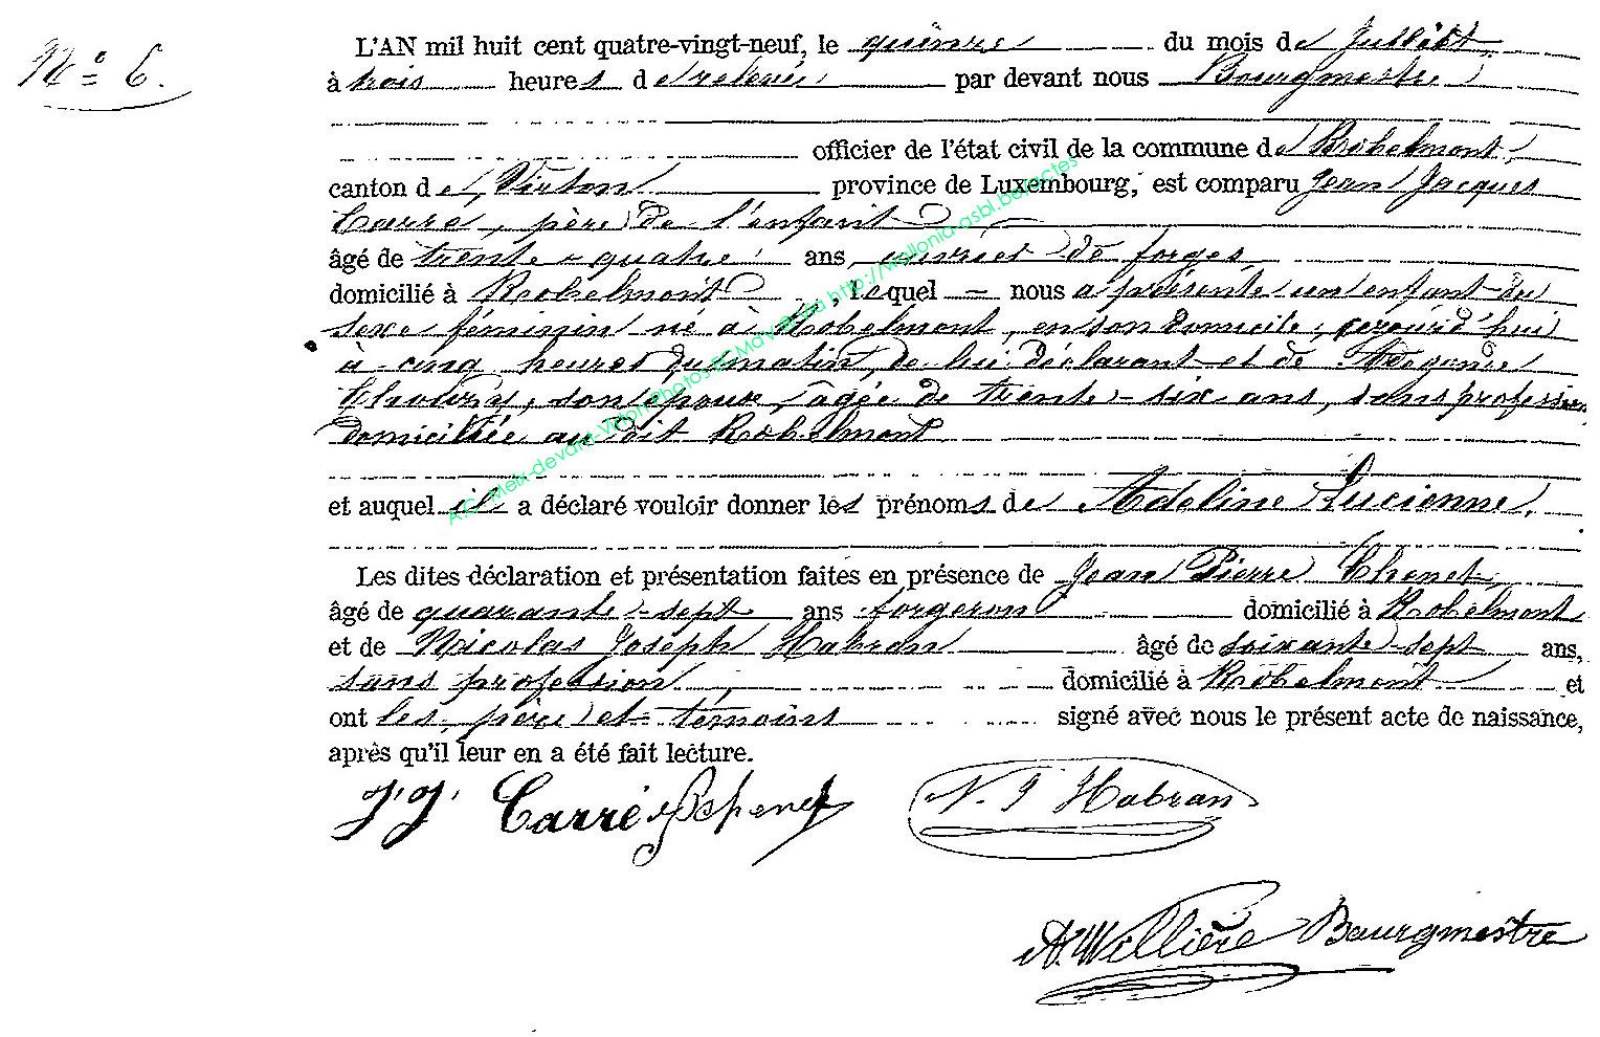 N° 6.
L'AN mil huit cent quatre-vingt-neuf, le quinze du mois de Juillet
à trois heures de relevée par devant nous Bourgmestre
officier de l'état civil de la commune de Robelmont,
canton de Virton province de Luxembourg, est comparu Jean Jacques
Carré, père de l'enfant
âgé de trente-quatre ans, ouvrier de forges
domicilié à Robelmont, lequel nous a présenté un enfant du
sexe féminin né à Robelmont, en son domicile, cejourd'hui
à cinq heures du matin, de lui déclarant et de
son épouse, âgée de trente-six ans, sans profession
domiciliée au dit Robelmont
et auquel il a déclaré vouloir donner les prénoms de Adeline Lucienne.
Les dites déclaration et présentation faites en présence de Jean Pierre Chenet,
âgé de quarante-sept ans forgeron domicilié à Robelmont
et de Nicolas Joseph Habran âgé de soixante-sept ans,
sans profession, domicilié à Robelmont et
ont les père et témoins signé avec nous le présent acte de naissance,
après qu'il leur en a été fait lecture.
J. J. Carré N. J Habran
Bourgmestre